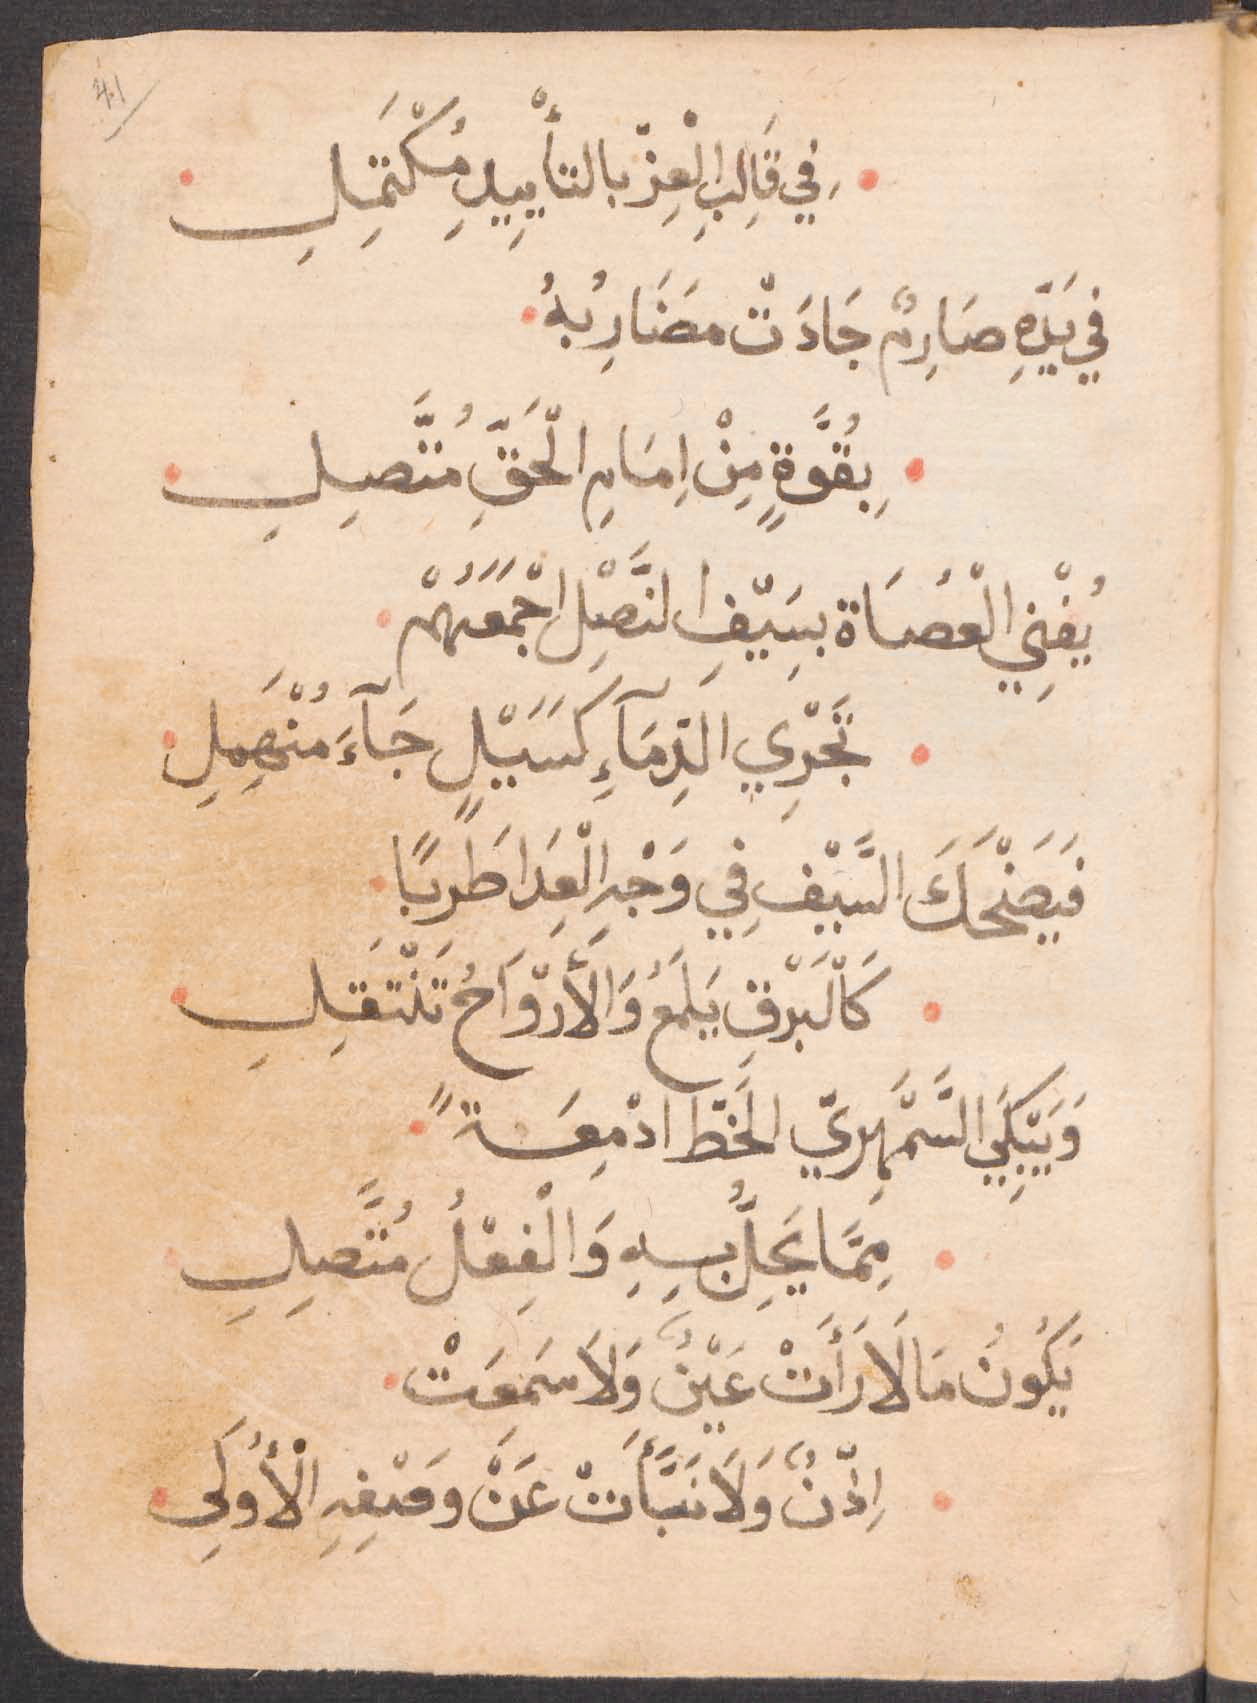 41
فِي قَالِبِ الْعِزّ بالتأْيِيدِ مُكْتَمِلِ
فِي يَدِّهِ صَارِمٌ جَادَتْ مضَارِبُهُ
بِقُوَّةٍ مِنْ اِمَامِ الْحَقِّ مُتَّصِلِ
يُفْنِي الْعُصَاة بسَيْفِ النَّصْلِ اجْمَعَهُمْ
تَجْرِي الدِمَآءِ كَسَيْلٍ جَآءَ مُنْهَمِلِ
فيَضْحَكَ السَّيْفِ فِي وَجْهِ الْعِدَا طَربًا
كَالْبَرْقِ يَلمَعُ وَالأَرْوَاحُ تَنْتَقِلِ
وَيَبْكِي السَّمْهِريّ الخَطّ ادْمِعَةً
مِمَّا يَحِلُّ بِهِ وَالْفِعْلُ مُتَّصِلِ
يَكُونُ مَا لَا رَأَتْ عَيْنٌ وَلَا سَمِعَتْ
اِذْنٌ وَلَا نَبَّأَتْ عَنْ وَصْفِهِ الْأُوَلِى